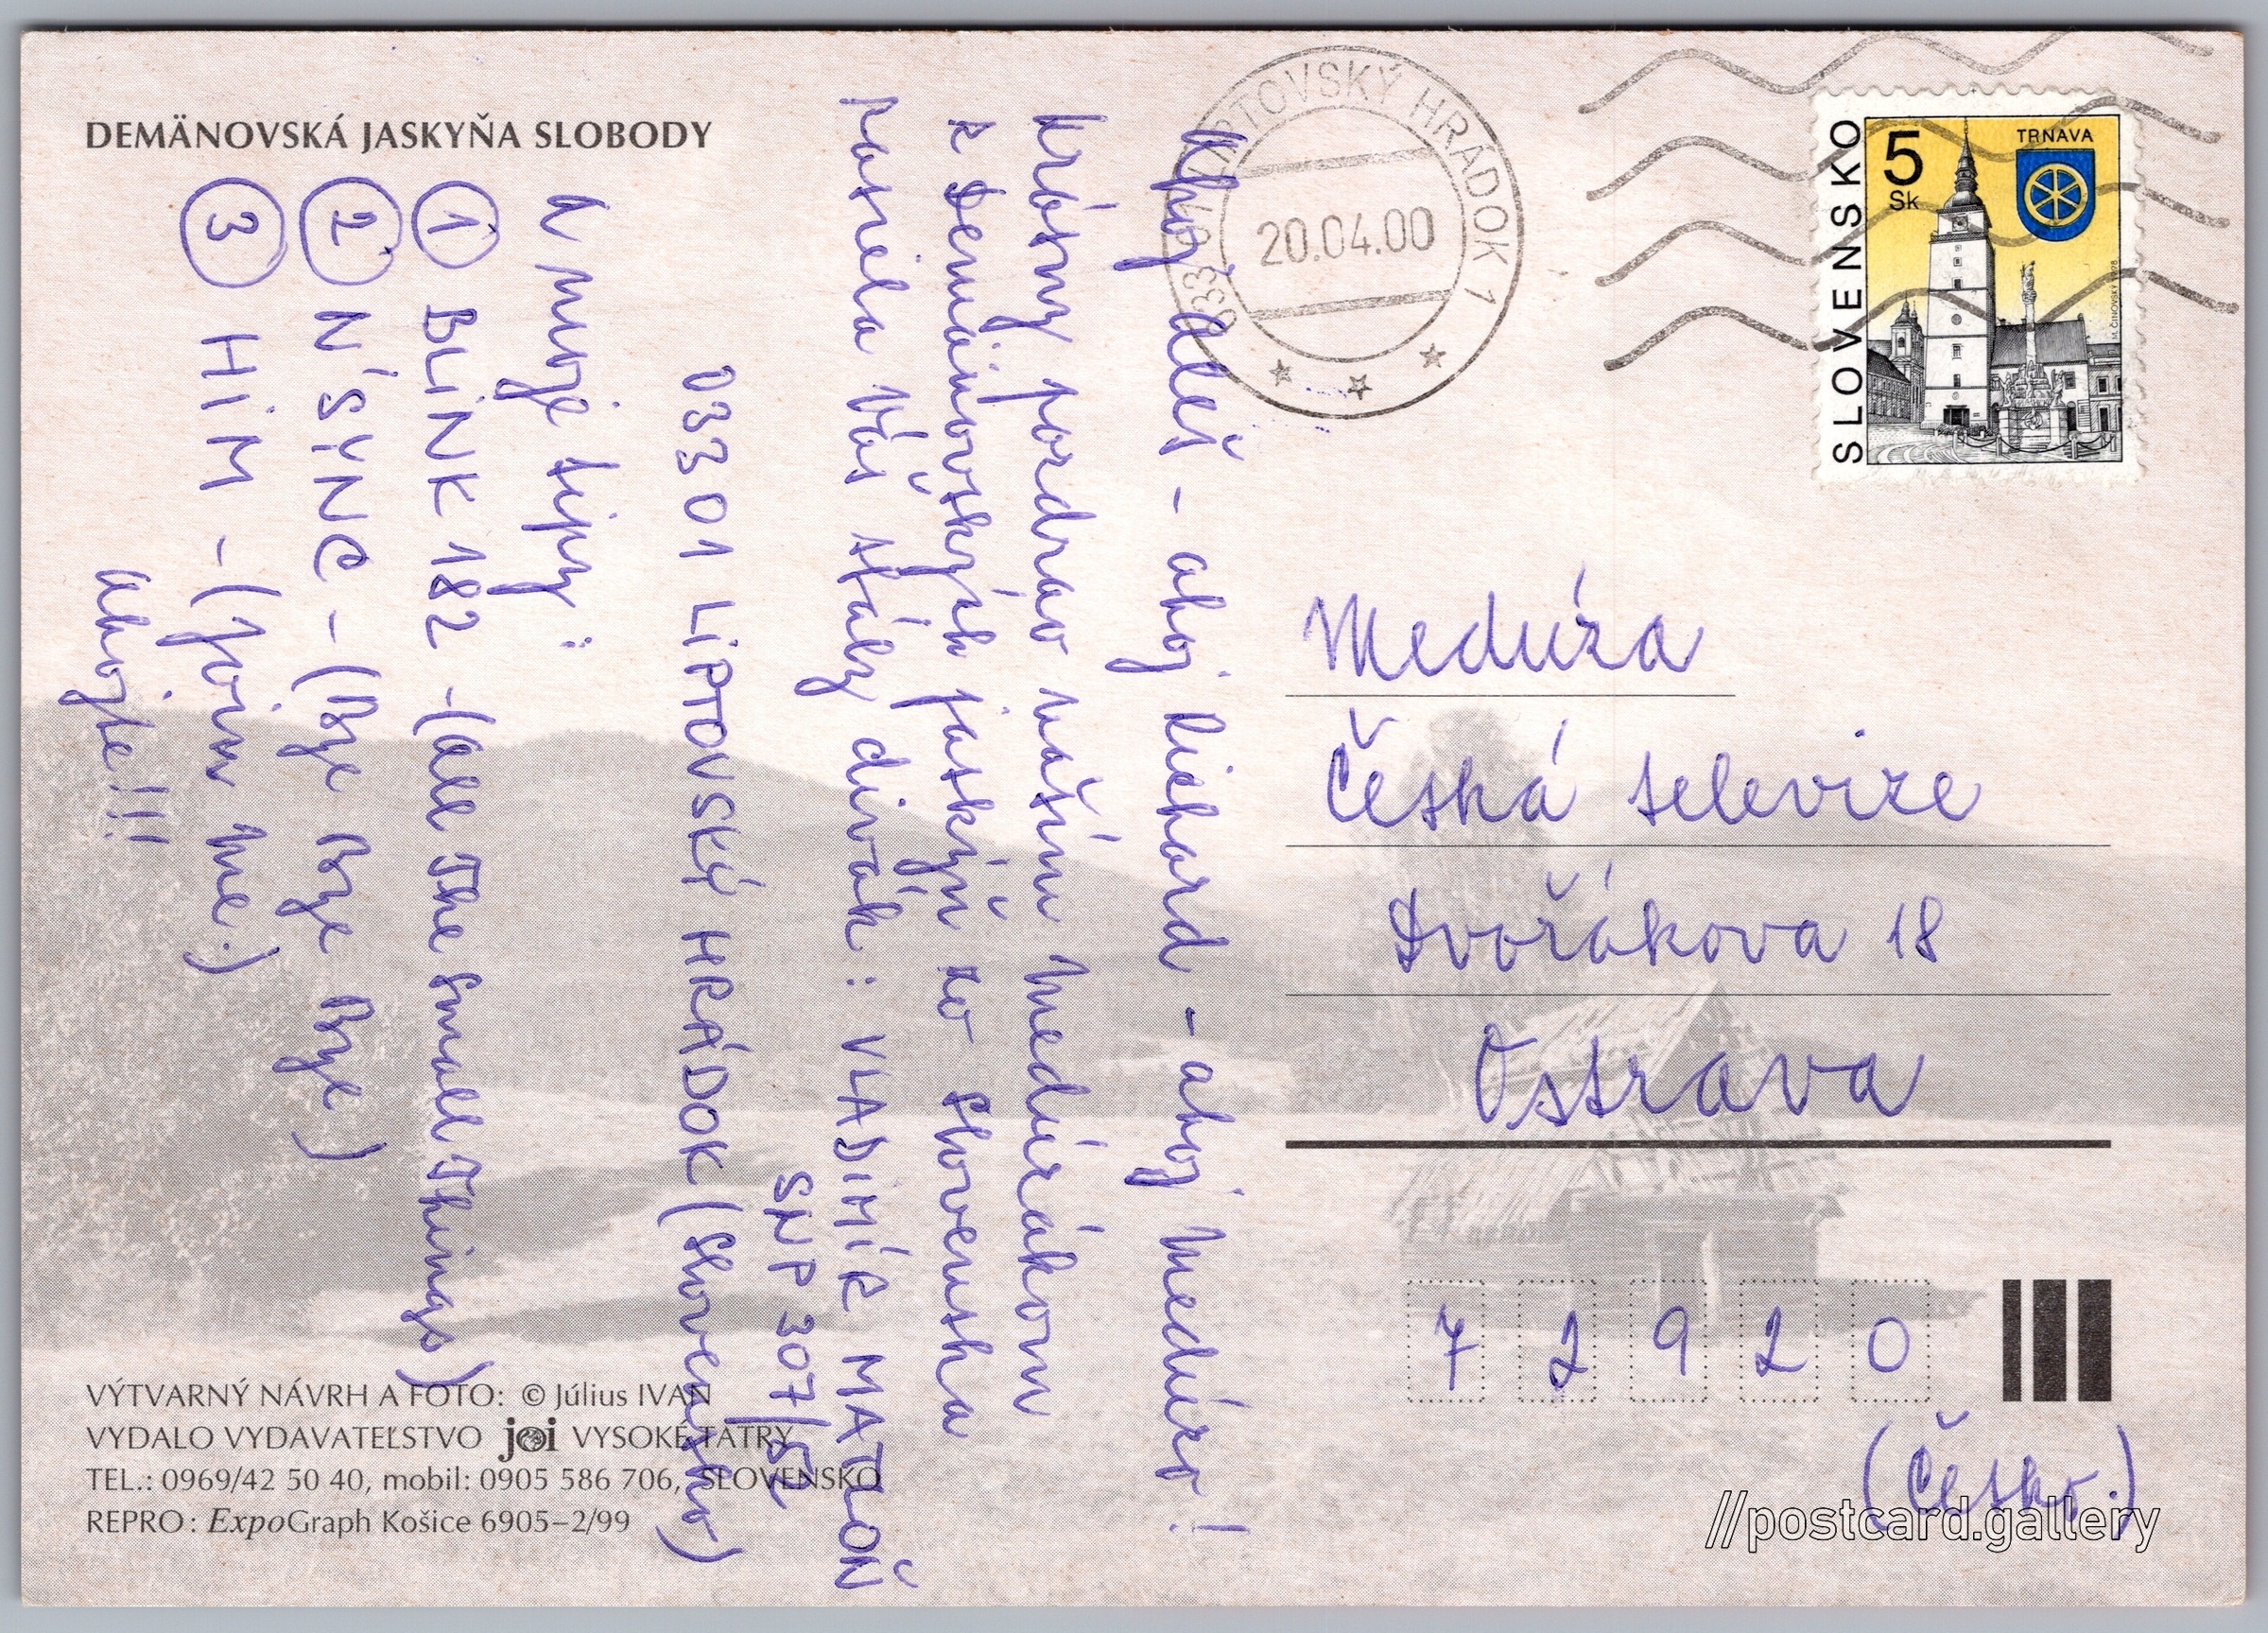 DEMÄNOVSKÁ JASKYŇA SLOBODY
Ahoj Aleš - ahoj Richard - ahoj Medúzo!
Krásny pozdrav našim medúzákom
z Demänovských jaskýň zo Slovenska
posiela Váš stály divák: VLADIMÍR MATLOŇ
SNP 307/52
033 01 LIPTOVSKÝ HRÁDOK (Slovensko)
A moje tipy:
1 BLINK 182 - (All The Small Things)
2 N'SYNC - (Bye Bye Bye)
3 HIM - (Join me.)
ahojte!!!
VÝTVARNÝ NÁVRH A FOTO: © Július IVAN
VYDALO VYDAVATEĽSTVO joi VYSOKÉ TATRY
TEL.: 0969/42 50 40, mobil: 0905 586 706, SLOVENSKO
REPRO: ExpoGraph Košice 6905–2/99
LIPTOVSKÝ HRÁDOK 1
033 01
20.04.00
SLOVENSKO
5
Sk
TRNAVA
Medúza
Česká televize
Dvořákova 18
Ostrava
72920
(Česko.)
//postcard.gallery